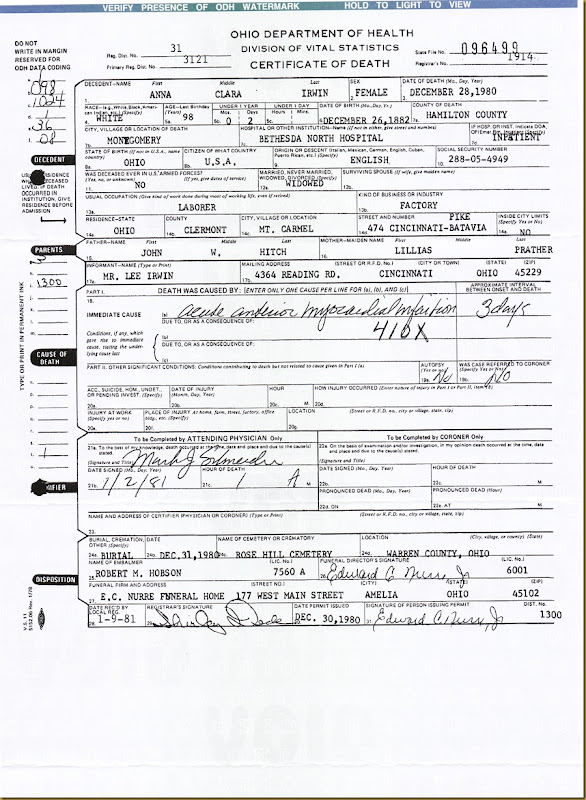 VERIFY PRESENCE OF ODH WATERMARK HOLD TO LIGHT TO VIEW
DO NOT
WRITE IN MARGIN
RESERVED FOR
ODH DATA CODING
OHIO DEPARTMENT OF HEALTH
DIVISION OF VITAL STATISTICS
CERTIFICATE OF DEATH
Reg. Dist. No. 31
Primary Reg. Dist. No. 3121
State File No. 096499
Registrar's No. 1914
DECEDENT—NAME First Middle Last SEX DATE OF DEATH (Mo., Day, Year)
1. ANNA CLARA IRWIN 2. FEMALE 3. DECEMBER 28,1980
RACE—(e.g., White, Black, American Indian, etc.) (Specify) AGE—Last Birthday (Years) UNDER 1 YEAR Mos. Days UNDER 1 DAY Hours Mins. DATE OF BIRTH (Mo., Day, Yr.) COUNTY OF DEATH
4. WHITE 5a. 98 5b. 0 2 5c. 6. DECEMBER 26,1882 7a. HAMILTON COUNTY
CITY, VILLAGE OR LOCATION OF DEATH HOSPITAL OR OTHER INSTITUTION—Name (If not in either, give street and number) IF HOSP. OR INST. Indicate DOA, OP/Emer. Rm., Inpatient (Specify)
7b. MONTGOMERY 7c. BETHESDA NORTH HOSPITAL 7d. INPATIENT
STATE OF BIRTH (If not in U.S.A., name country) CITIZEN OF WHAT COUNTRY ORIGIN OR DESCENT (Italian, Mexican, German, English, Cuban, Puerto Rican, etc.) (Specify) SOCIAL SECURITY NUMBER
8. OHIO 9. U.S.A. 10. ENGLISH 11. 288-05-4949
WAS DECEASED EVER IN U.S. ARMED FORCES? (Yes, no, or unknown) (If yes, give dates of service) MARRIED, NEVER MARRIED, WIDOWED, DIVORCED (Specify) SURVIVING SPOUSE (If wife, give maiden name)
NO WIDOWED
USUAL OCCUPATION (Give kind of work done during most of working life, even if retired) KIND OF BUSINESS OR INDUSTRY
LABORER FACTORY
RESIDENCE—STATE COUNTY CITY, VILLAGE OR LOCATION STREET AND NUMBER INSIDE CITY LIMITS (Specify Yes or No)
14a. OHIO 14b. CLERMONT 14c. MT. CARMEL 14d. 474 CINCINNATI-BATAVIA PIKE 14e. NO
FATHER—NAME First Middle Last MOTHER—MAIDEN NAME First Middle Last
15. JOHN W. HITCH 16. LILLIAS PRATHER
INFORMANT—NAME (Type or Print) MAILING ADDRESS (STREET OR R.F.D. No.) (CITY OR TOWN) (STATE) (ZIP)
17a. MR. LEE IRWIN 17b. 4364 READING RD. CINCINNATI OHIO 45229
PART I. DEATH WAS CAUSED BY: [ENTER ONLY ONE CAUSE PER LINE FOR (a), (b), AND (c)] APPROXIMATE INTERVAL BETWEEN ONSET AND DEATH
18. IMMEDIATE CAUSE (a) acute anterior myocardial infarction 3 days
DUE TO, OR AS A CONSEQUENCE OF: 410X
Conditions, if any, which gave rise to immediate cause, stating the underlying cause last
(b)
DUE TO, OR AS A CONSEQUENCE OF:
(c)
PART II. OTHER SIGNIFICANT CONDITIONS: Conditions contributing to death but not related to cause given in Part I (a) AUTOPSY (Yes or no) WAS CASE REFERRED TO CORONER (Specify Yes or No)
19a. No 19b. No
ACC., SUICIDE, HOM., UNDET., OR PENDING INVEST. (Specify) DATE OF INJURY (Month, Day, Year) HOUR HOW INJURY OCCURRED (Enter nature of injury in Part I or Part II, item 18)
20a. 20b. 20c. M 20d.
INJURY AT WORK (Specify yes or no) PLACE OF INJURY At home, farm, street, factory, office bldg., etc. (Specify) LOCATION (Street or R.F.D. no., city or village, state, zip)
20e. 20f. 20g.
To be Completed by ATTENDING PHYSICIAN Only To be Completed by CORONER Only
21a. To the best of my knowledge, death occurred at the time, date and place and due to the cause(s) stated. 22a. On the basis of examination and/or investigation, in my opinion death occurred at the time, date and place and due to the cause(s) stated.
(Signature and Title) (Signature and Title)
DATE SIGNED (Mo., Day, Year) HOUR OF DEATH DATE SIGNED (Mo., Day, Year) HOUR OF DEATH
21b. 1/2/81 21c. 1 A M 22b. 22c. M
PRONOUNCED DEAD (Mo., Day, Year) PRONOUNCED DEAD (Hour)
22d. ON 22e. AT M
NAME AND ADDRESS OF CERTIFIER (PHYSICIAN OR CORONER) (Type or Print) (Street or R.F.D. no., city or village, state, zip)
23.
BURIAL, CREMATION, OTHER (Specify) DATE NAME OF CEMETERY OR CREMATORY LOCATION (City, village, or county) (State)
24a. BURIAL 24b. DEC.31,1980 24c. ROSE HILL CEMETERY 24d. WARREN COUNTY, OHIO
NAME OF EMBALMER (LIC. No.) FUNERAL DIRECTOR'S SIGNATURE (LIC. No.)
25. ROBERT M. HOBSON 7560 A 26. Edward C. Nurre, Jr 6001
FUNERAL FIRM AND ADDRESS (STREET NO.) (CITY) (STATE) (ZIP)
27. E.C. NURRE FUNERAL HOME 177 WEST MAIN STREET AMELIA OHIO 45102
DATE REC'D BY LOCAL REG. REGISTRAR'S SIGNATURE DATE PERMIT ISSUED SIGNATURE OF PERSON ISSUING PERMIT DIST. No.
28. 1-9-81 29. 30. DEC. 30,1980 31. Edward C. Nurre, Jr 1300
DECEDENT
PARENTS
1300
CAUSE OF DEATH
DISPOSITION
TYPE OR PRINT IN PERMANENT INK